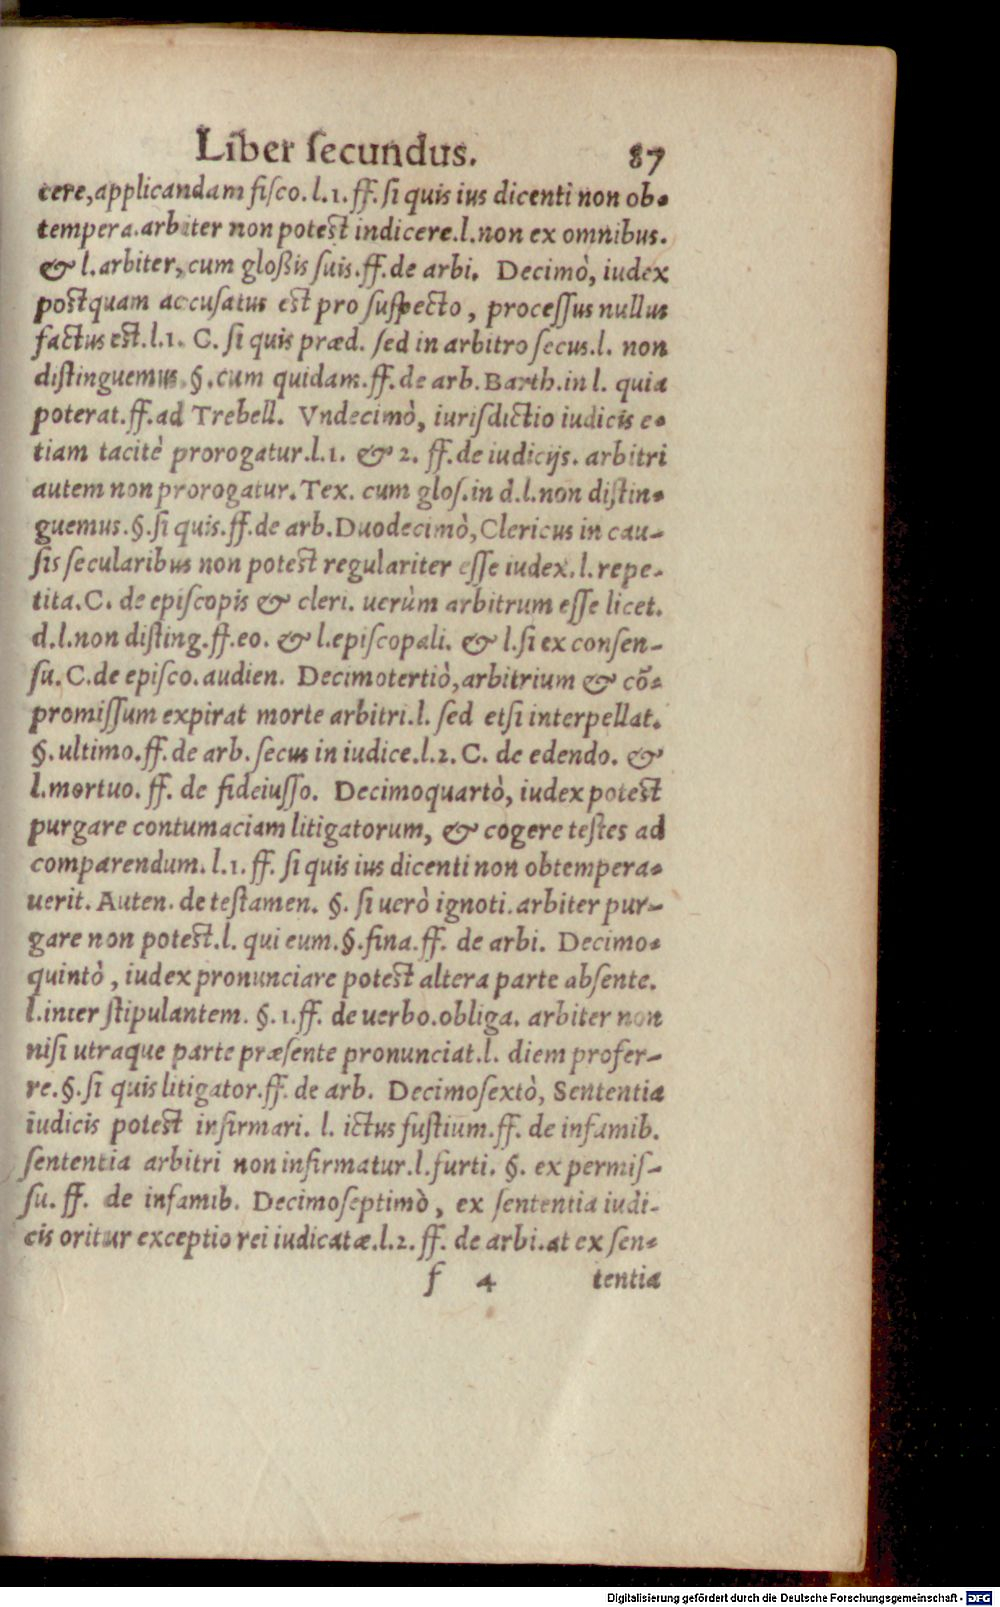 Liber ſecundus. 87
cere, applicandam fiſco. l. 1. ff. ſi quis ius dicenti non ob-
tempera. arbiter non poteſt indicere. l. non ex omnibus.
& l. arbiter, cum gloßis ſuis. ff. de arbi. Decimò, iudex
poſtquam accuſatus eſt pro ſuſpecto, proceſſus nullus
factus eſt. l. 1. C. ſi quis præd. ſed in arbitro ſecus. l. non
diſtinguemus. §. cum quidam. ff. de arb. Barth. in l. quia
poterat. ff. ad Trebell. Vndecimò, iuriſdictio iudicis e-
tiam tacitè prorogatur. l. 1. & 2. ff. de iudicijs. arbitri
autem non prorogatur. Tex. cum gloſ. in d. l. non diſtin-
guemus. §. ſi quis. ff. de arb. Duodecimò, Clericus in cau-
ſis ſecularibus non poteſt regulariter eſſe iudex. l. repe-
tita. C. de epiſcopis & cleri. uerùm arbitrum eſſe licet.
d. l. non diſting. ff. eo. & l. epiſcopali. & l. ſi ex conſen-
ſu. C. de epiſco. audien. Decimotertiò, arbitrium & cõ-
promiſſum expirat morte arbitri. l. ſed etſi interpellat.
§. ultimo. ff. de arb. ſecus in iudice. l. 2. C. de edendo. &
l. mortuo. ff. de fideiuſſo. Decimoquartò, iudex poteſt
purgare contumaciam litigatorum, & cogere teſtes ad
comparendum. l. 1. ff. ſi quis ius dicenti non obtempera-
uerit. Auten. de teſtamen. §. ſi uerò ignoti. arbiter pur-
gare non poteſt. l. qui eum. §. fina. ff. de arbi. Decimo-
quintò, iudex pronunciare poteſt altera parte abſente.
l. inter ſtipulantem. §. 1. ff. de uerbo. obliga. arbiter non
niſi utraque parte præſente pronunciat. l. diem profer-
re. §. ſi quis litigator. ff. de arb. Decimoſextò, Sententia
iudicis poteſt infirmari. l. ictus fuſtium. ff. de infamib.
ſententia arbitri non infirmatur. l. furti. §. ex permiſ-
ſu. ff. de infamib. Decimoſeptimò, ex ſententia iudi-
cis oritur exceptio rei iudicatæ. l. 2. ff. de arbi. at ex ſen-
f 4 tentia
Digitalisierung gefördert durch die Deutsche Forschungsgemeinschaft - DFG